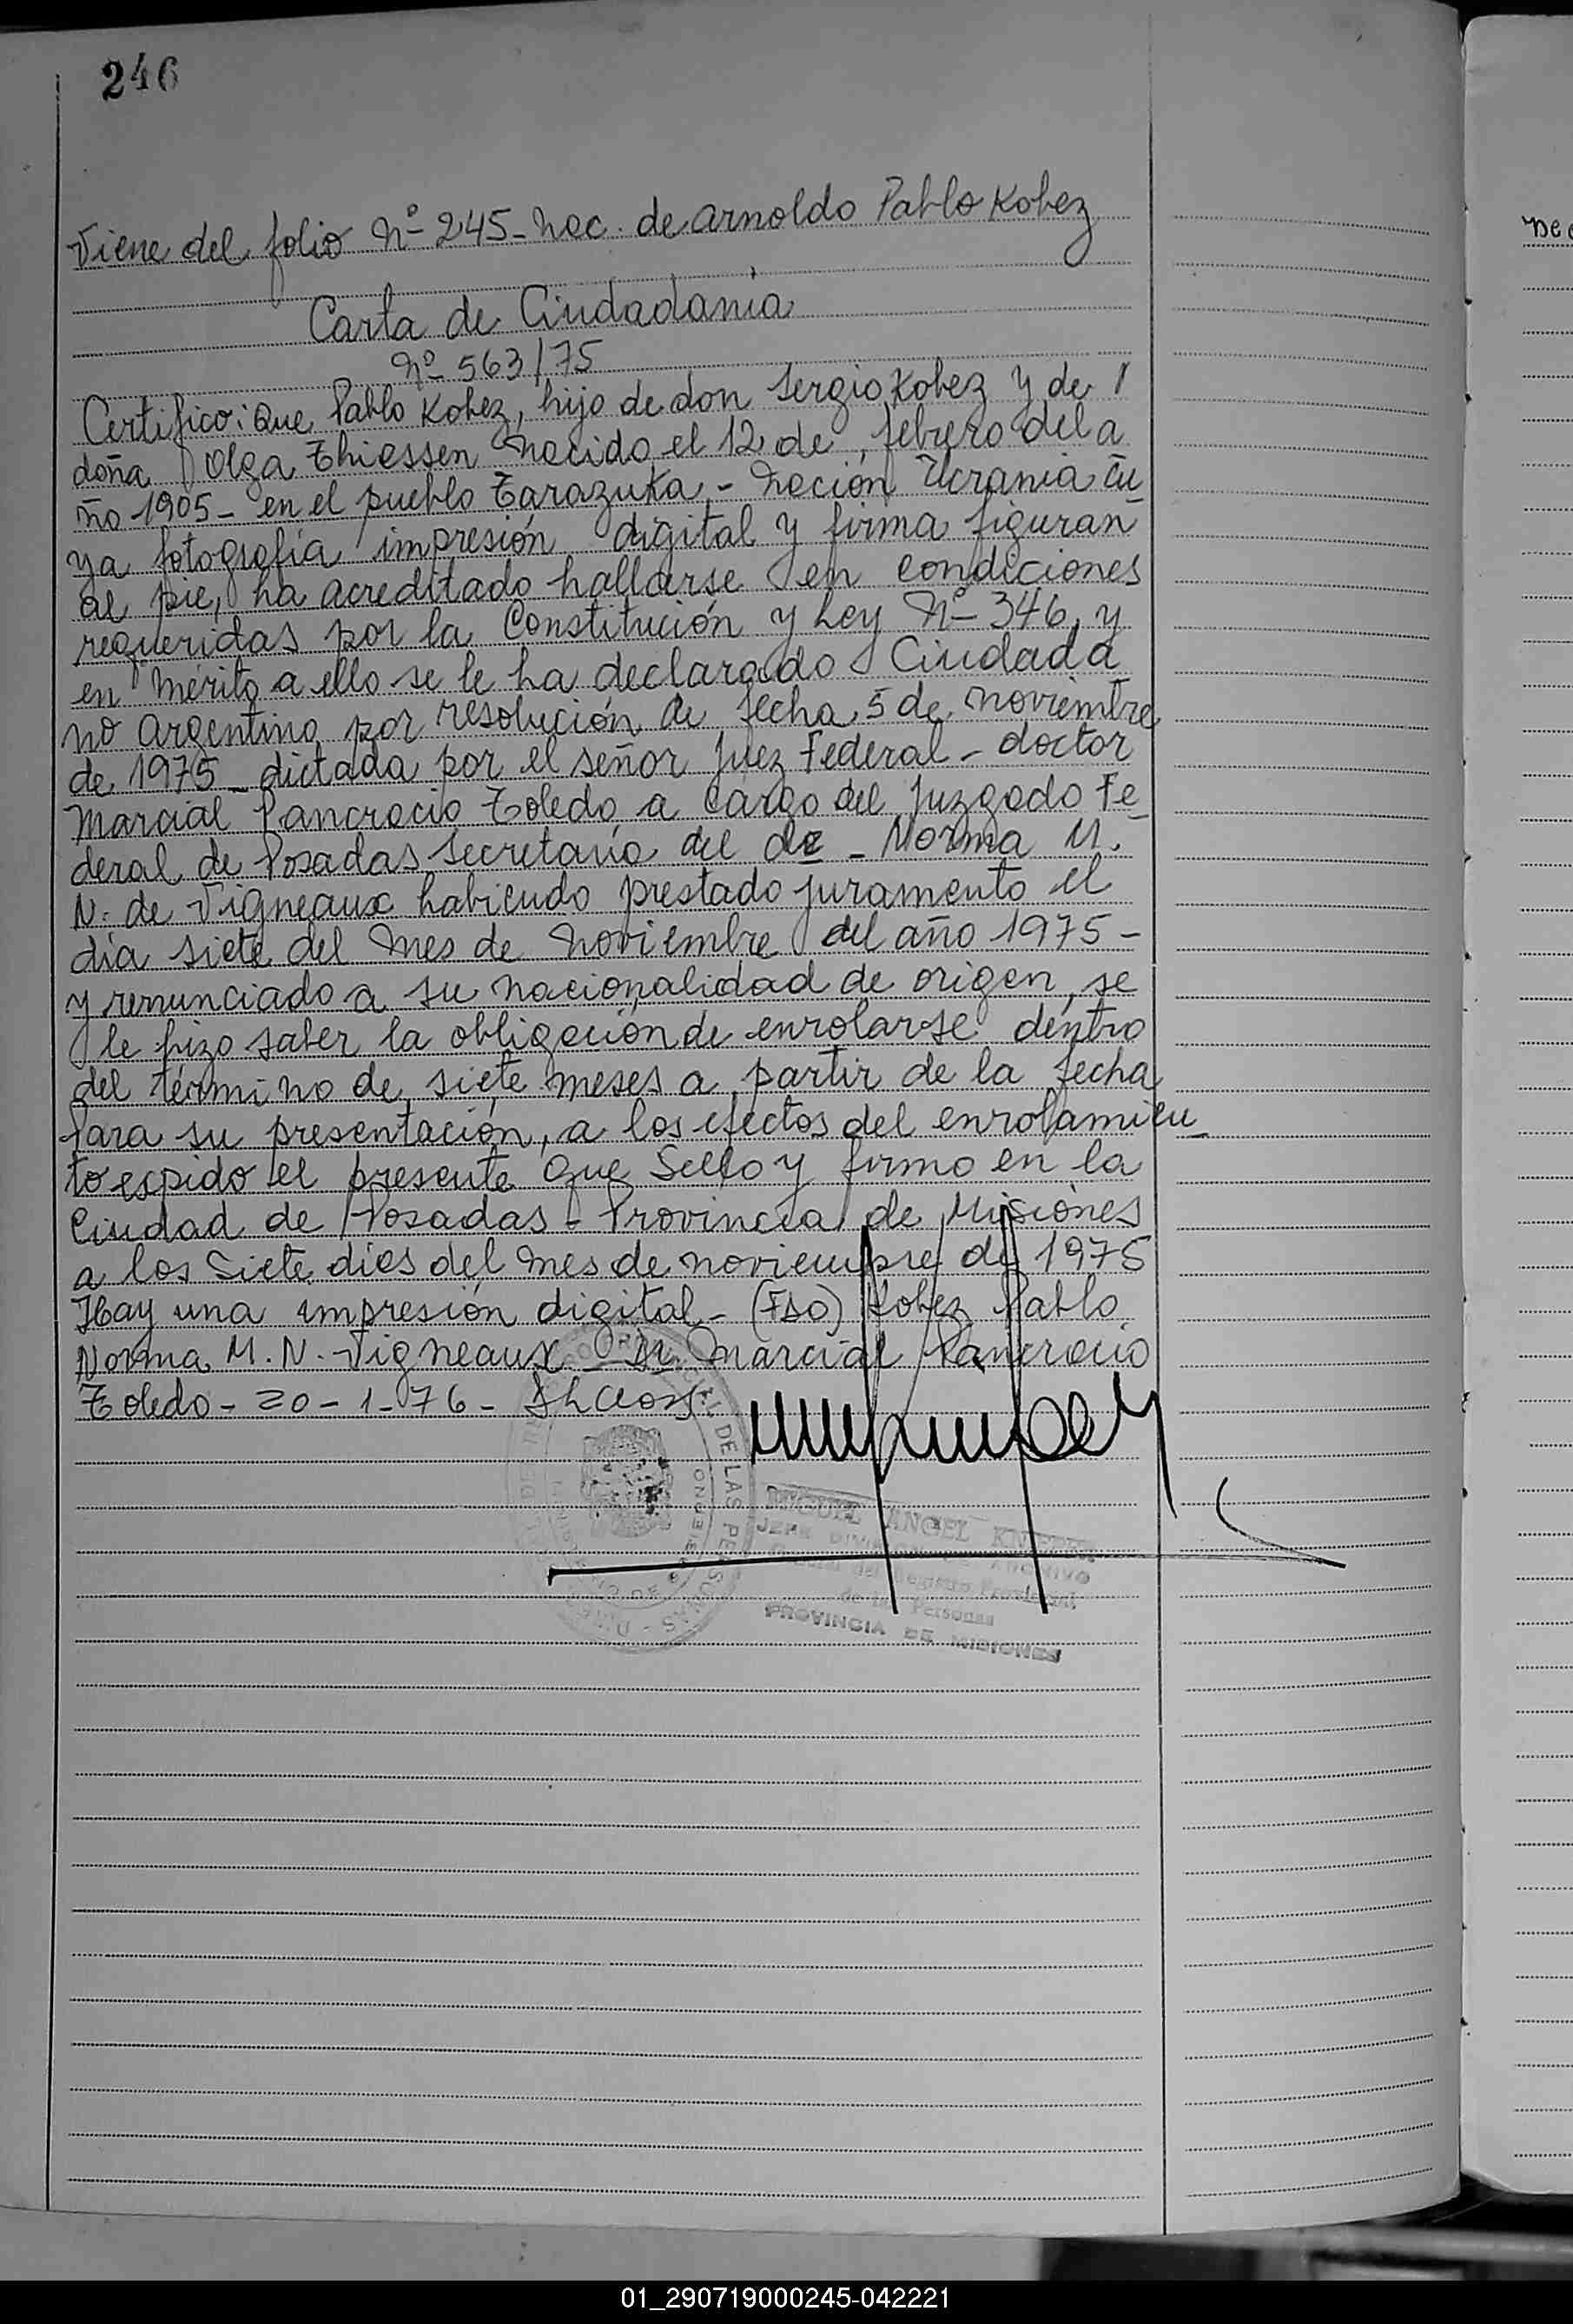 246
Viene del folio Nº 245 - Nac. de Arnoldo Pablo Kobez
Carta de Ciudadania
Nº 563/75
Certifico: Que Pablo Kobez, hijo de don Sergio Kobez y de
doña Olga Thiessen nacido el 12 de febrero del a
ño 1905 - en el pueblo Tarazuka - Nación Ucrania cu
ya fotografía impresión digital y firma figuran
al pie, ha acreditado hallarse en condiciones
requeridas por la Constitución y Ley Nº 346, y
en mérito a ello se le ha declarado Ciudada
no Argentino por resolución de fecha 5 de noviembre
de 1975 - dictada por el señor Juez Federal - doctor
Marcial Pancracio Toledo a cargo del Juzgado Fe
deral de Posadas Secretaria del de - Norma M.
N. de Vigneaux habiendo prestado juramento el
día siete del mes de noviembre del año 1975 -
y renunciado a su nacionalidad de origen, se
le hizo saber la obligación de enrolarse dentro
del término de siete meses a partir de la fecha
Para su presentación, a los efectos del enrolamien
to expido el presente que Sello y firmo en la
Ciudad de Posadas - Provincia de Misiones
a los Siete dias del mes de noviembre de 1975
Hay una impresión digital - (Fdo) Kobez Pablo.
Norma M. N. Vigneaux - Dr. Marcial Pancracio
Toledo - 20 - 1 - 76 -
MIGUEL ANGEL
JEFE DIVISION ARCHIVO
del Registro Provincial
de las Personas
PROVINCIA DE MISIONES
DE LAS PERSONAS
01_290719000245-042221